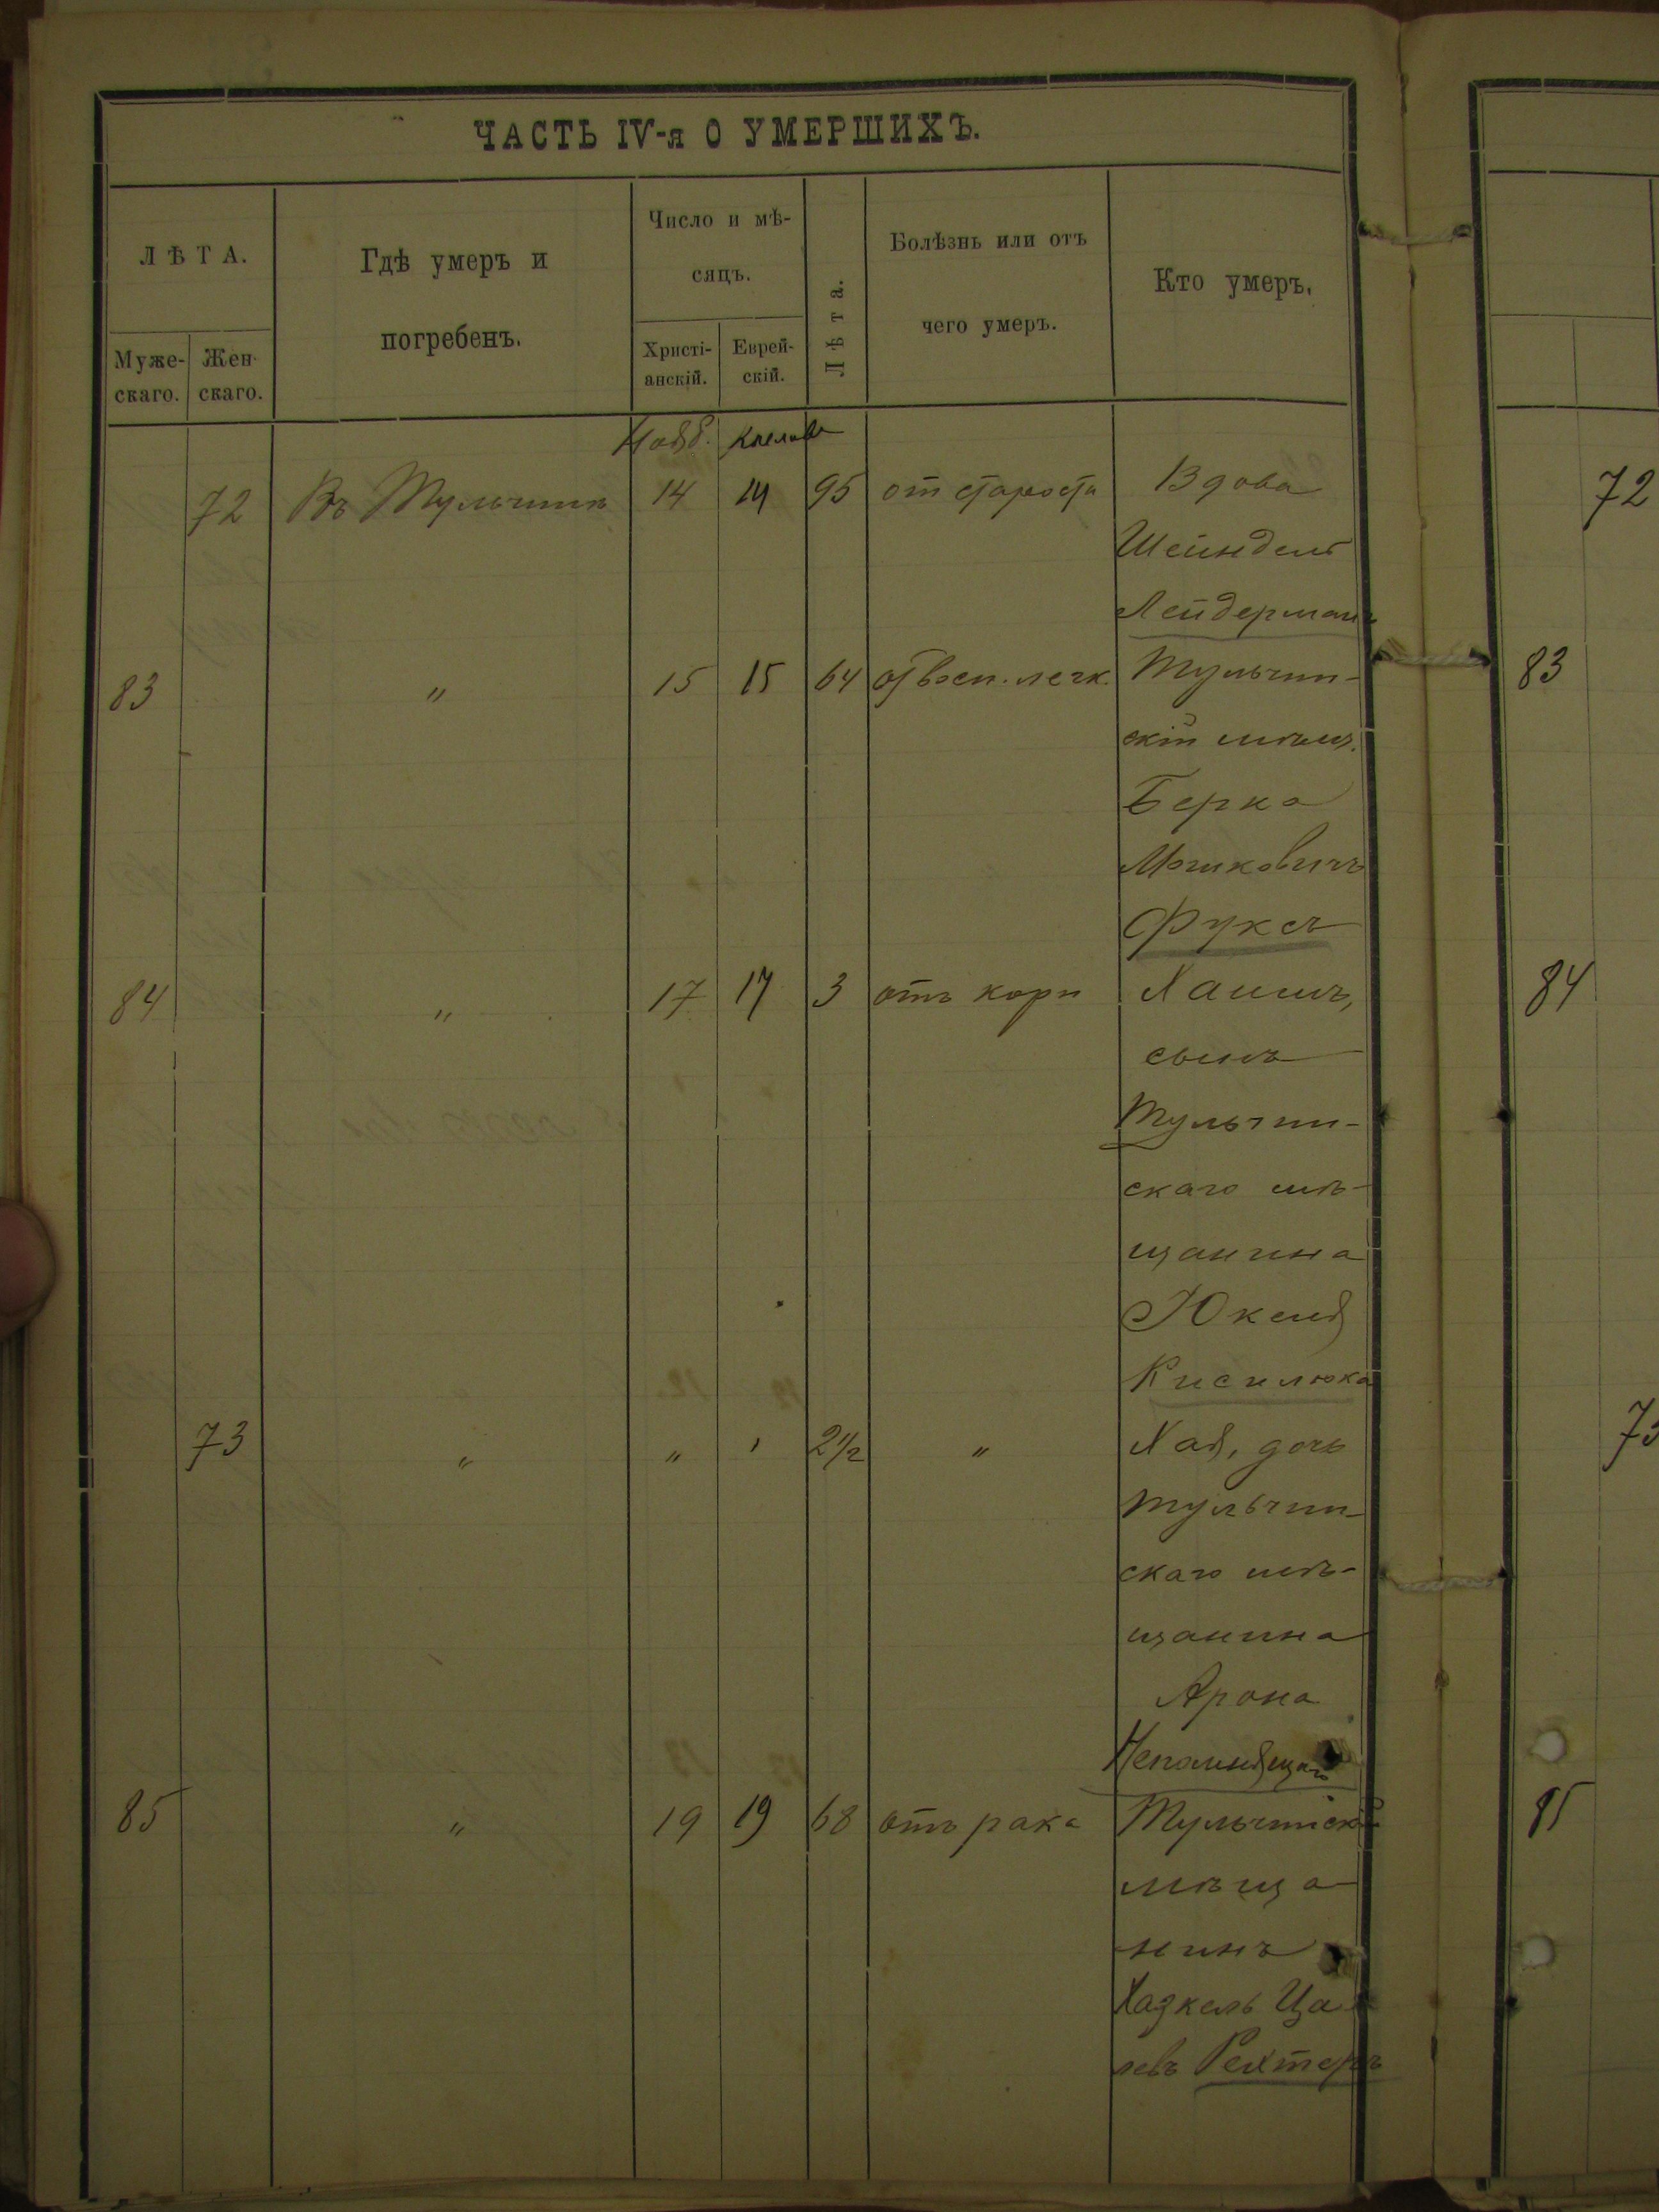 ЧАСТЬ IV-я О УМЕРШИХЪ.
ЛѢТА.
Муже-
скаго.
Жен-
скаго.
Гдѣ умеръ и
погребенъ.
Число и мѣ-
сяцъ.
Христі-
анскій.
Еврей-
скій.
Лѣта.
Болѣзнь или отъ
чего умеръ.
Кто умеръ.
Нояб.
72 Въ Тульчинѣ 14 14 95 от старости Вдова 72
Шейндель
Лейдерманъ
83 " 15 15 64 от восп. легк. Тульчин- 83
скій мѣщ.
Берко
Мошковичъ
Фуксъ
84 " 17 17 3 отъ кори Хаимъ, 84
сынъ
Тульчин-
скаго мѣ-
щанина
Юкеля
Кисилюка
73 " " " 2 1/2 " Хая, дочь 73
Тульчин-
скаго мѣ-
щанина
Арона
Непомнящаго
85 " 19 19 68 отъ рака Тульчинскій 85
мѣща-
нинъ
Хаскель Ца-
левъ Рехтеръ